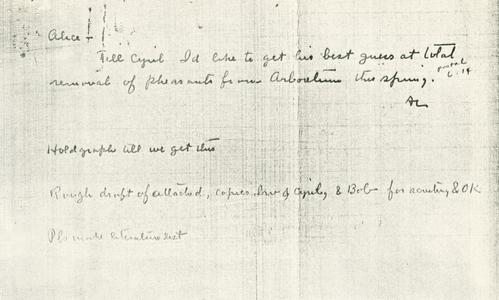 Alice -
Tell Cyril I'd like to get his best guess at total
removal of pheasants from Arboretum this spring.
AL
Hold graph till we get this
Rough draft of attached, copies for Cyril, & Bob for scrutiny & OK
Pls make literature list